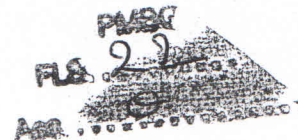 PMSG
FLS. 22
Ass.